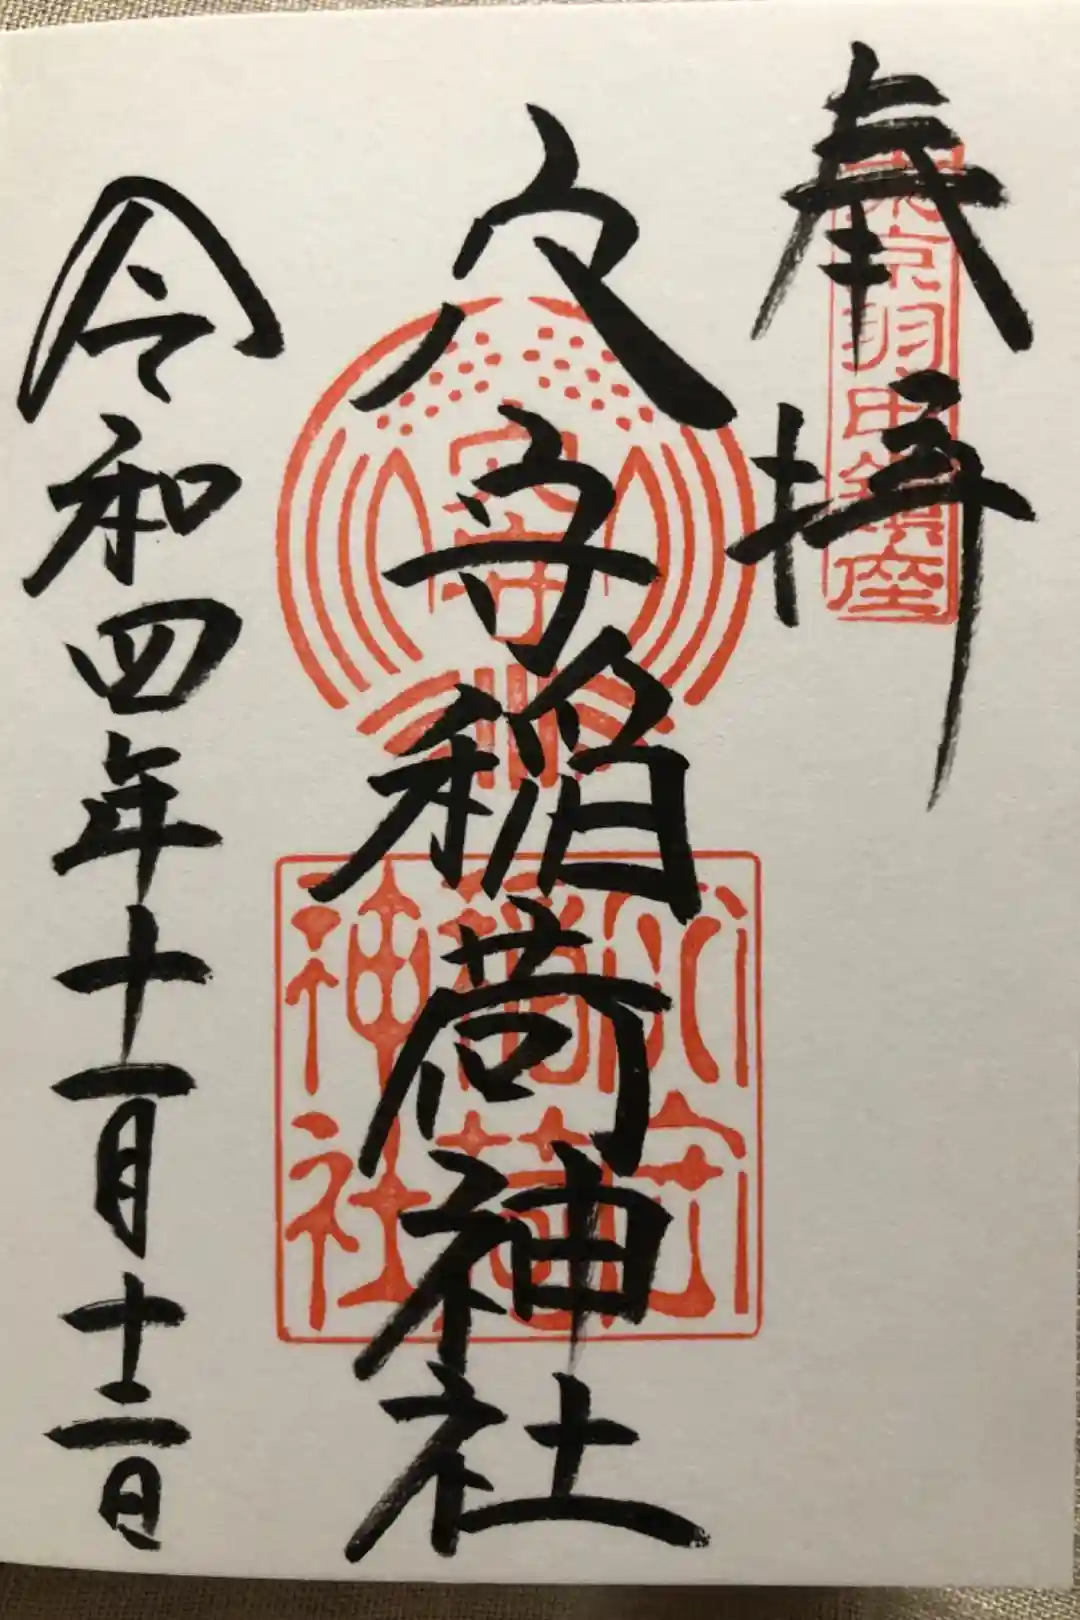 奉拝
東京羽田鎮座
穴守稲荷神社
穴守
穴守
稲荷
神社
令和四年十一月十二日